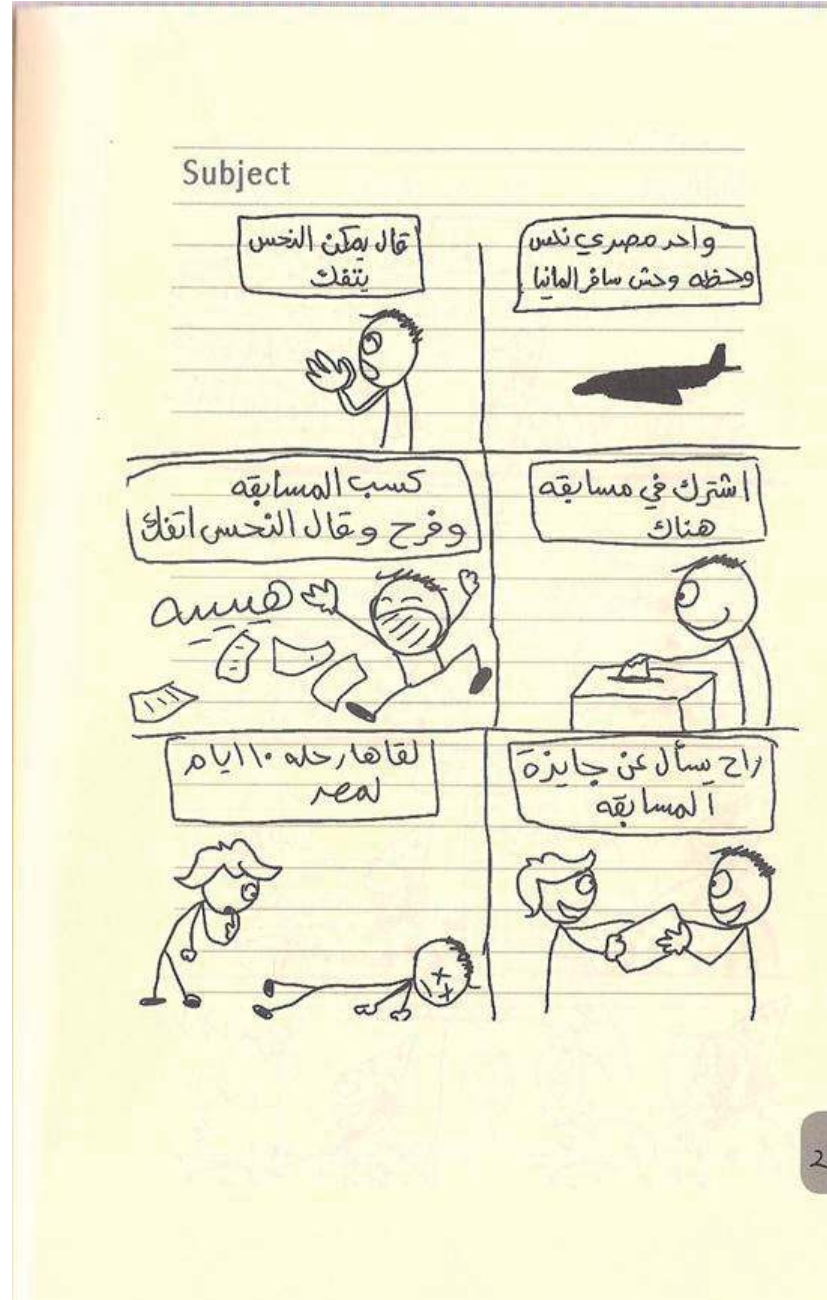 Subject
واحد مصري نحس
وحظه وحش سافر المانيا
قال يمكن النحس
يتفك
اشترك في مسابقه
هناك
كسب المسابقه
وفرح وقال النحس اتفك
هييييه
راح يسأل عن جايزة
المسابقه
لقاها رحله ١٠ ايام
لمصر
2